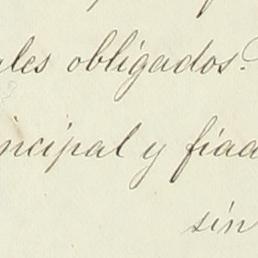 ales obligados.
incipal y fiad
sin